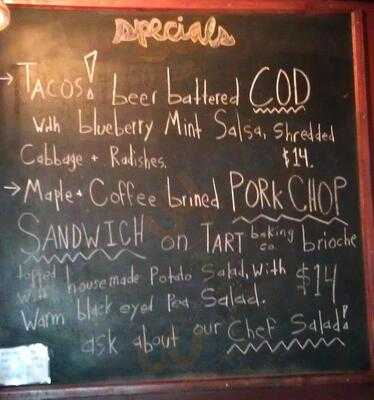 specials
→ TACOS! beer battered COD
with blueberry Mint Salsa, Shredded
Cabbage + Radishes. $14.
→ Maple + Coffee brined PORK CHOP
SANDWICH on TART baking co. brioche
topped with housemade Potato Salad, with $14
Warm black eyed Pea Salad.
ask about our Chef Salad!